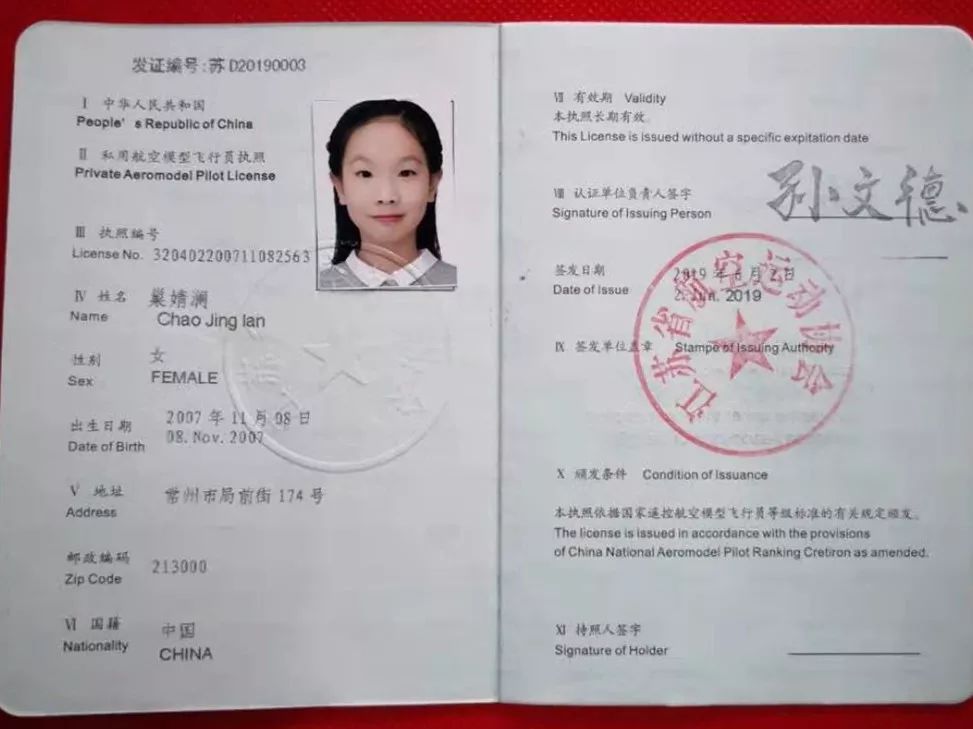 发证编号:苏 D20190003
Ⅰ 中华人民共和国
People's Republic of China
Ⅱ 私用航空模型飞行员执照
Private Aeromodel Pilot License
Ⅲ 执照编号
License No. 320402200711082563
Ⅳ 姓名 巢婧澜
Name Chao Jing lan
性别 女
Sex FEMALE
出生日期 2007 年 11 月 08 日
Date of Birth 08. Nov. 2007
Ⅴ 地址 常州市局前街 174 号
Address
邮政编码
Zip Code 213000
Ⅵ 国籍 中国
Nationality CHINA
Ⅶ 有效期 Validity
本执照长期有效。
This License is issued without a specific expitation date
Ⅷ 认证单位负责人签字
Signature of Issuing Person
孙文德
签发日期 2019 年 6 月 2 日
Date of Issue 2. Jun. 2019
Ⅸ 签发单位盖章 Stampe of Issuing Authority
江苏省航空运动协会
Ⅹ 颁发条件 Condition of Issuance
本执照依据国家遥控航空模型飞行员等级标准的有关规定颁发。
The license is issued in accordance with the provisions
of China National Aeromodel Pilot Ranking Cretiron as amended.
Ⅺ 持照人签字
Signature of Holder